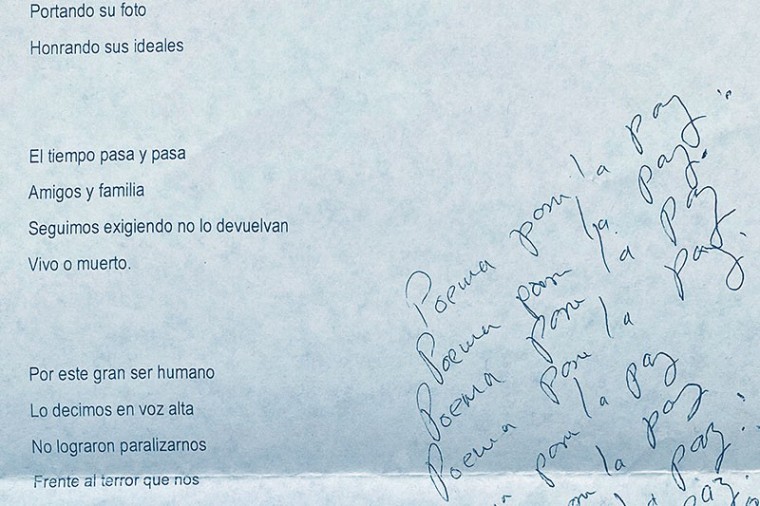 Portando su foto
Honrando sus ideales
El tiempo pasa y pasa
Amigos y familia
Seguimos exigiendo no lo devuelvan
Vivo o muerto.
Por este gran ser humano
Lo decimos en voz alta
No lograron paralizarnos
Frente al terror que nos
Poema para la paz
Poema para la paz.
Poema para la paz
Poema para la paz.
para la paz
para la paz
la paz
paz.